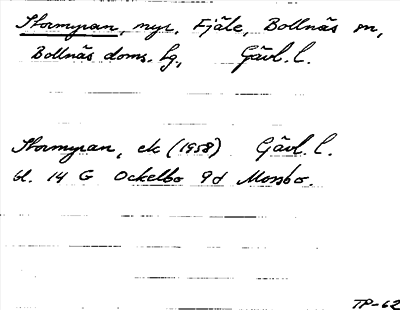 Stormyran, myr, Fjäle, Bollnäs sn,
Bollnäs doms. lg, Gävl. l.
Stormyran, ek (1958) Gävl. l.
bl. 14 G Ockelbo 9d Mossbo.
TP-62